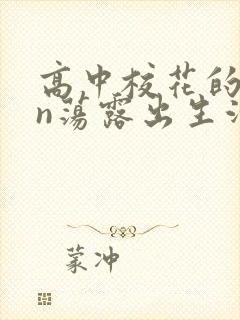 高中校花的
n荡露出生
蒙冲